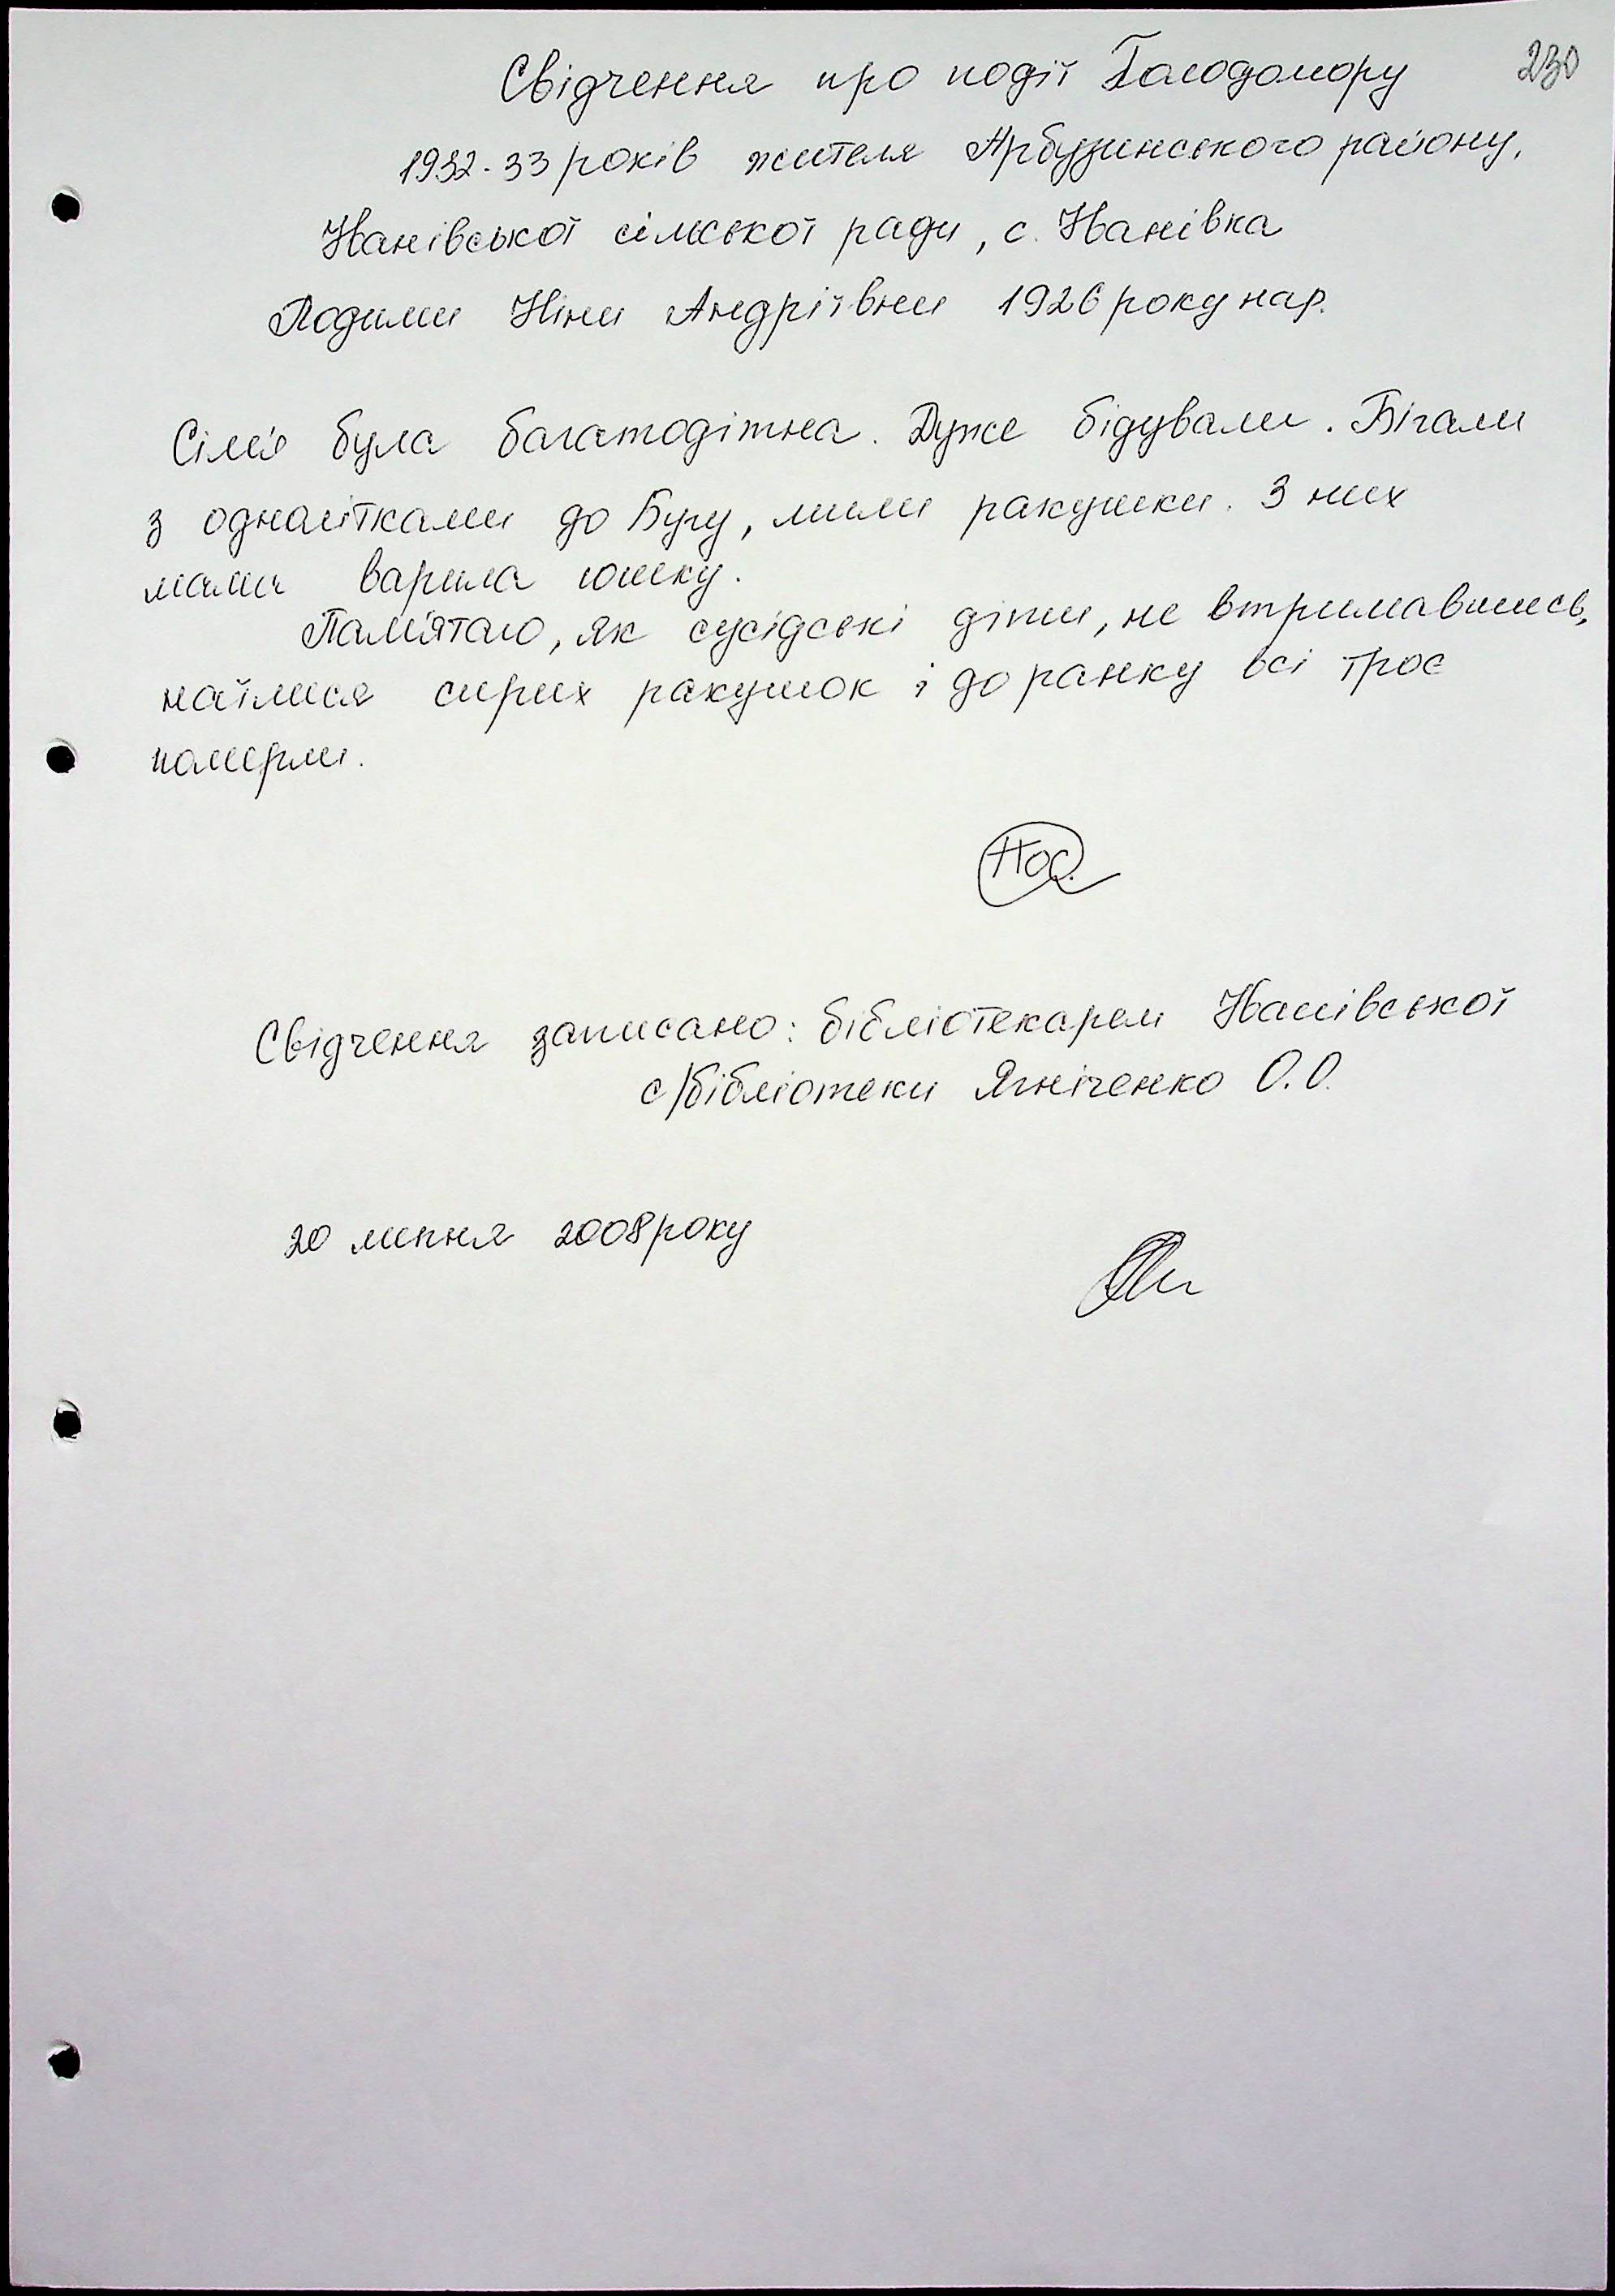 230
Свідчення про події Голодомору
1932-33 років жителя Арбузинського району,
Іванівської сільської ради, с. Іванівка
Ніни Андріївни 1926 року нар.
Сім'я була багатодітна. Дуже бідували. Бігали
з однолітками до Бугу, мили ракушки. З них
мама варила юшку.
Пам'ятаю, як сусідські діти, не втримавшись,
наїлися сирих ракушок і до ранку всі троє
померли.
Свідчення записано: бібліотекарем Іванівської
с/бібліотеки Ягніченко О.О.
20 липня 2008 року